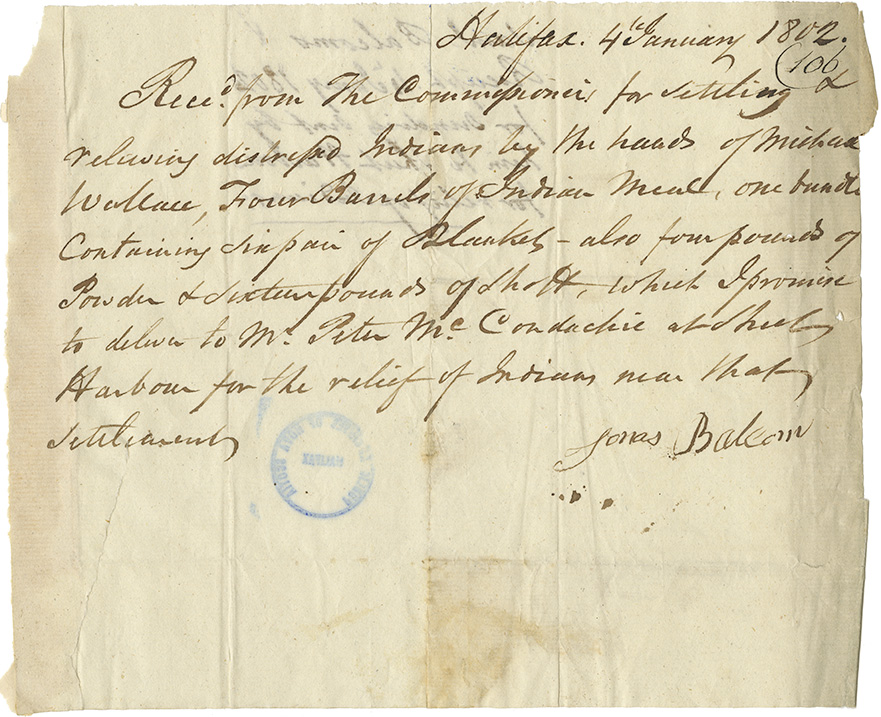 Halifax. 4th January 1802.
106
Reced. from The Commissioners for Settling &
releiving distressd Indians by the hands of Michael
Wallace, Four Barrels of Indian Meal, one bundle
Containing Six pair of Blankets – also four pounds of
Powder & Sixteen pounds of Shott, which I promise
to deliver to Mr. Peter Mc Condachie at Sheet
Harbour for the relief of Indians near that
Settlement
Jonas Balcom